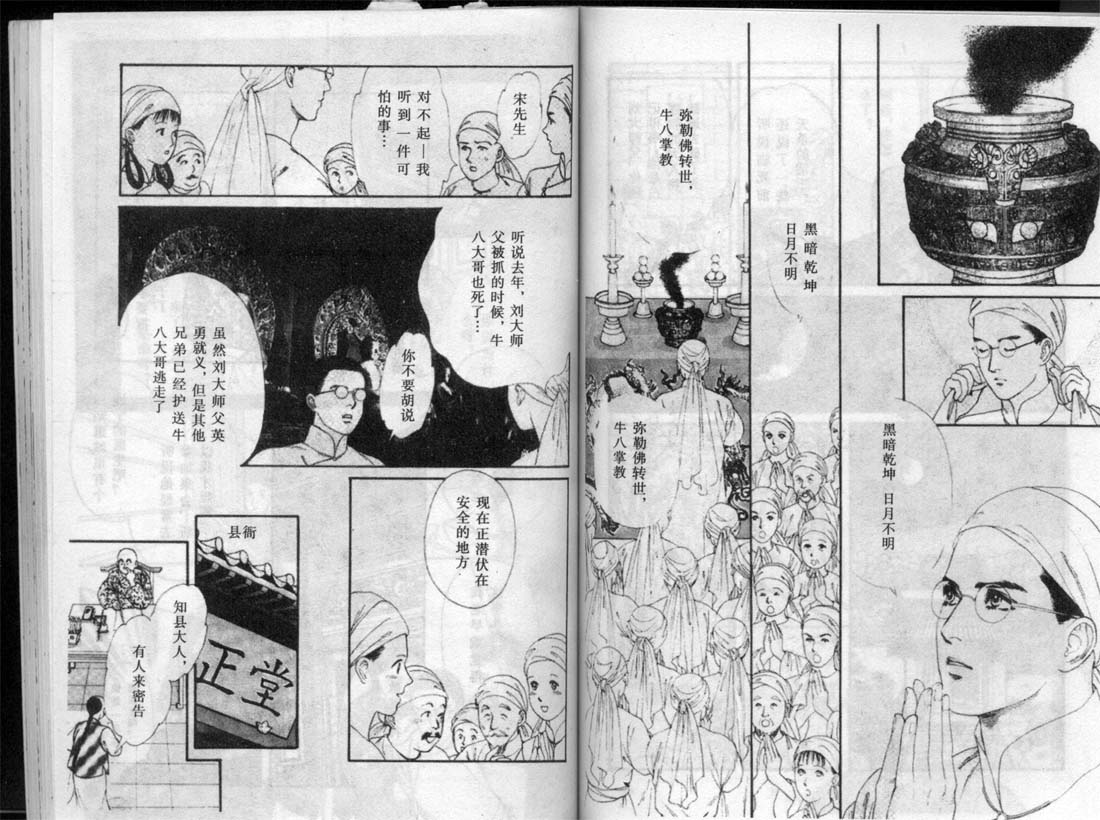 黑暗乾坤
日月不明
黑暗乾坤 日月不明
弥勒佛转世，
牛八掌教
弥勒佛转世，
牛八掌教
宋先生
对不起—我
听到一件可
怕的事…
听说去年，刘大师
父被抓的时候，牛
八大哥也死了…
你不要胡说
虽然刘大师父英
勇就义，但是其他
兄弟已经护送牛
八大哥逃走了
现在正潜伏在
安全的地方
县衙
正堂
知县大人，
有人来密告